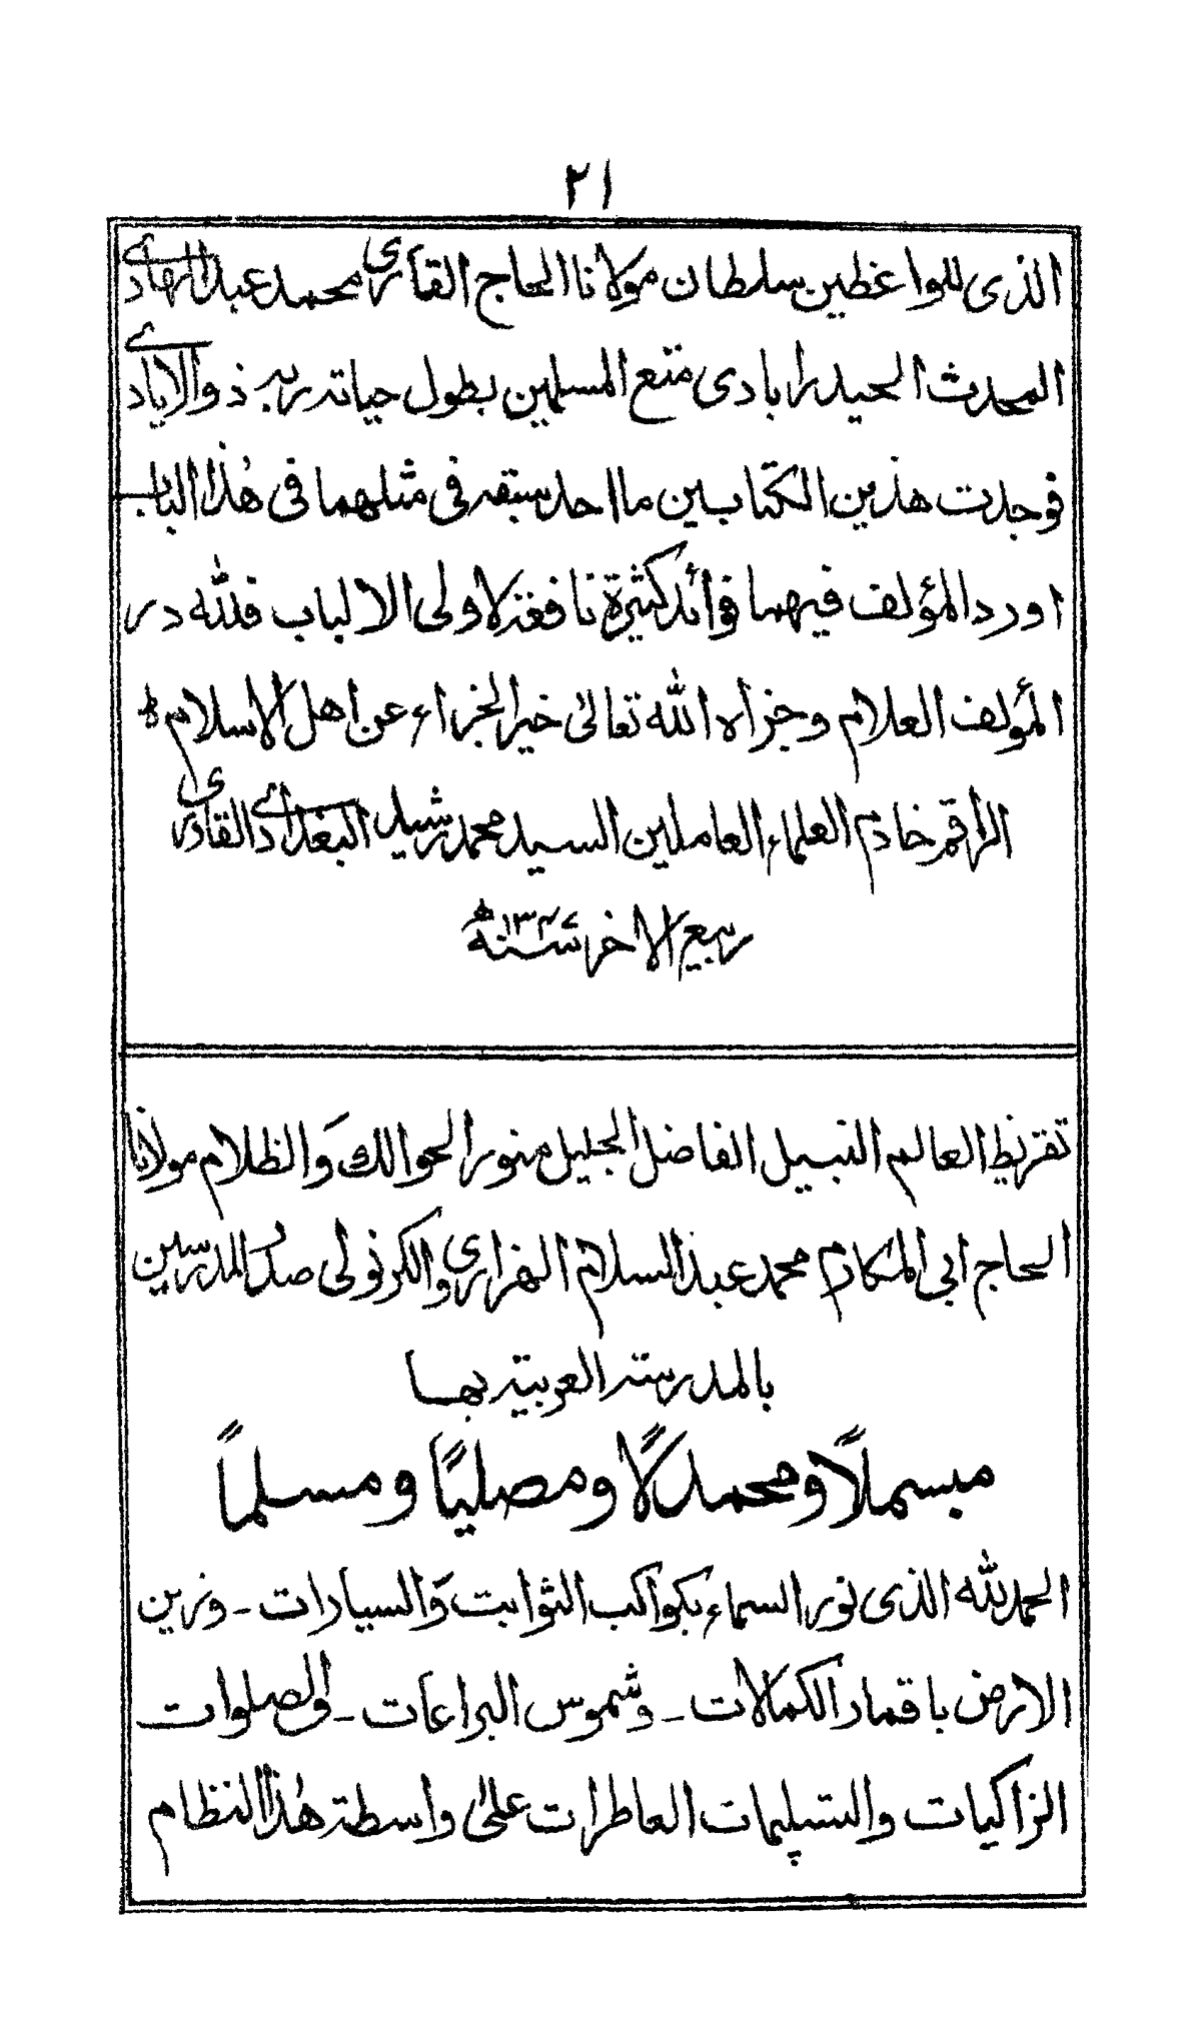 ٢١
الذى للواعظين سلطان مولانا الحاج القارى محمد عبد الهادى
المحدث الحيدرابادى متع المسلمين بطول حياته ربه ذو الايادى
فوجدت هذين الكتابين ما احد سبقه فى مثلهما فى هٰذا الباب
اورد المؤلف فيهما فوائد كثيرة نافعة لاولى الالباب فلله در
المؤلف العلام وجزاه الله تعالىٰ خير الجزاء عن اهل الاسلام ه
الراقم خادم العلماء العاملين السيد محمد رشيد البغدادى القادرى
ربيع الاخر سنة ١٣٤٧ ه
تقريظ العالم النبيل الفاضل الجليل منور الحوالك وَالظلام مولانا
الحاج ابى المكارم محمد عبد السلام الهزاروى والكرنولى صدر المدرسين
بالمدرسة العربية بها
مبسملاً ومحمدلًا ومصليًا ومسلماً
الحمد لله الذى نور السماء بكواكب الثوابت وَالسيارات - وزين
الارض باقمار الكمالات - وشموس البراعات - والصلوات
الزاكيات والتسليمات العاطرات علىٰ واسطة هٰذا النظام